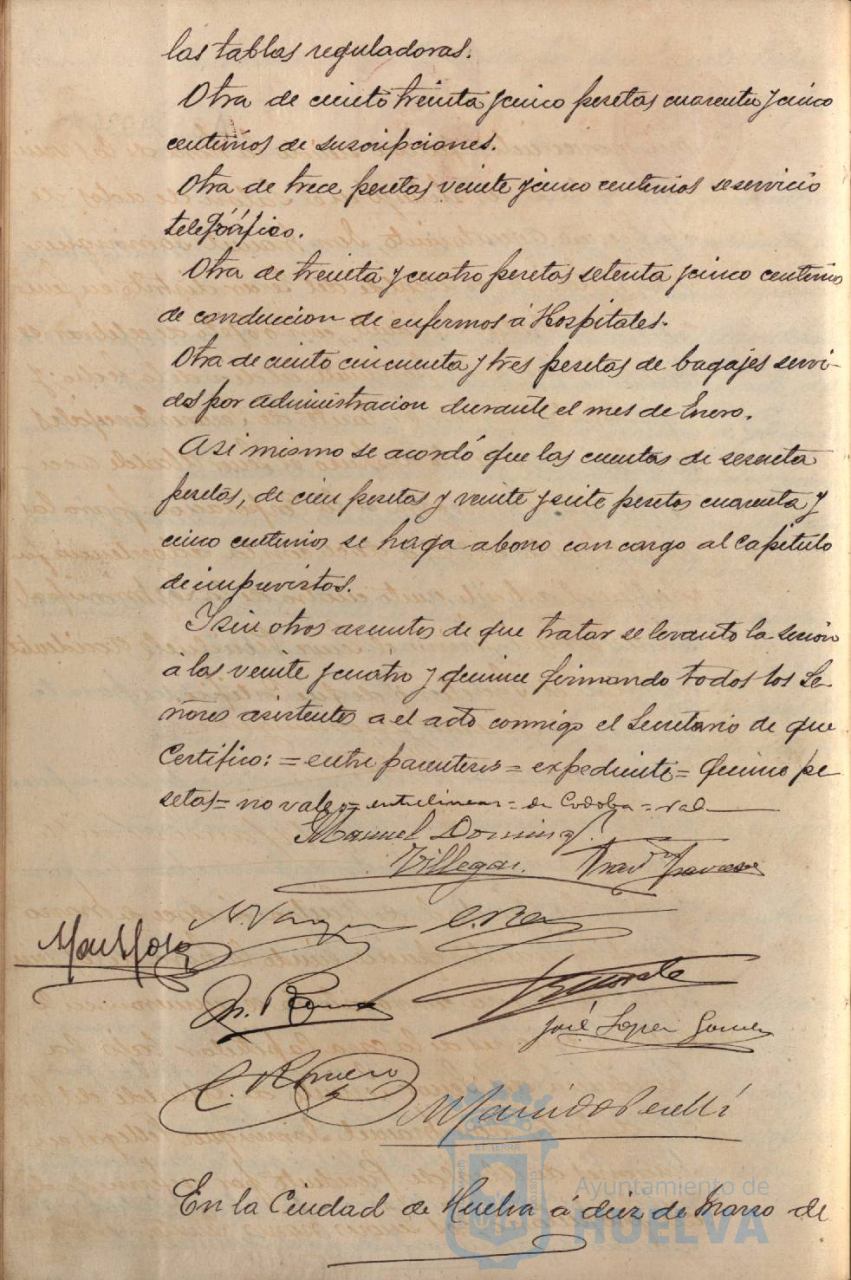 las tablas reguladoras.
Otra de ciento treinta y cinco pesetas cuarenta y cinco
centimos de suscripciones.
Otra de trece pesetas veinte y cinco centimos de servicio
telefónico.
Otra de treinta y cuatro pesetas setenta y cinco centimos
de conduccion de enfermos á Hospitales.
Otra de ciento cincuenta y tres pesetas de bagajes servi-
dos por administracion durante el mes de Enero.
Asi mismo se acordó que las cuentas de sesenta
pesetas, de cien pesetas y veinte y siete pesetas cuarenta y
cinco centimos se haga abono con cargo al Capitulo
de imprevistos.
Y sin otros asuntos de que tratar se levanto la sesión
á las veinte y cuatro y quince firmando todos los Se-
ñores asistentes a el acto conmigo el Secretario de que
Certifico: = entre parentesis = expediente = Quince pe
setas = no vale = entrelineas = de Cordoba = vale
Manuel Doming
Villegas.
M Vazquez
C. Romero
José Lopez Gomez
En la Ciudad de Huelva á diez de Marzo de
Ayuntamiento de
HUELVA